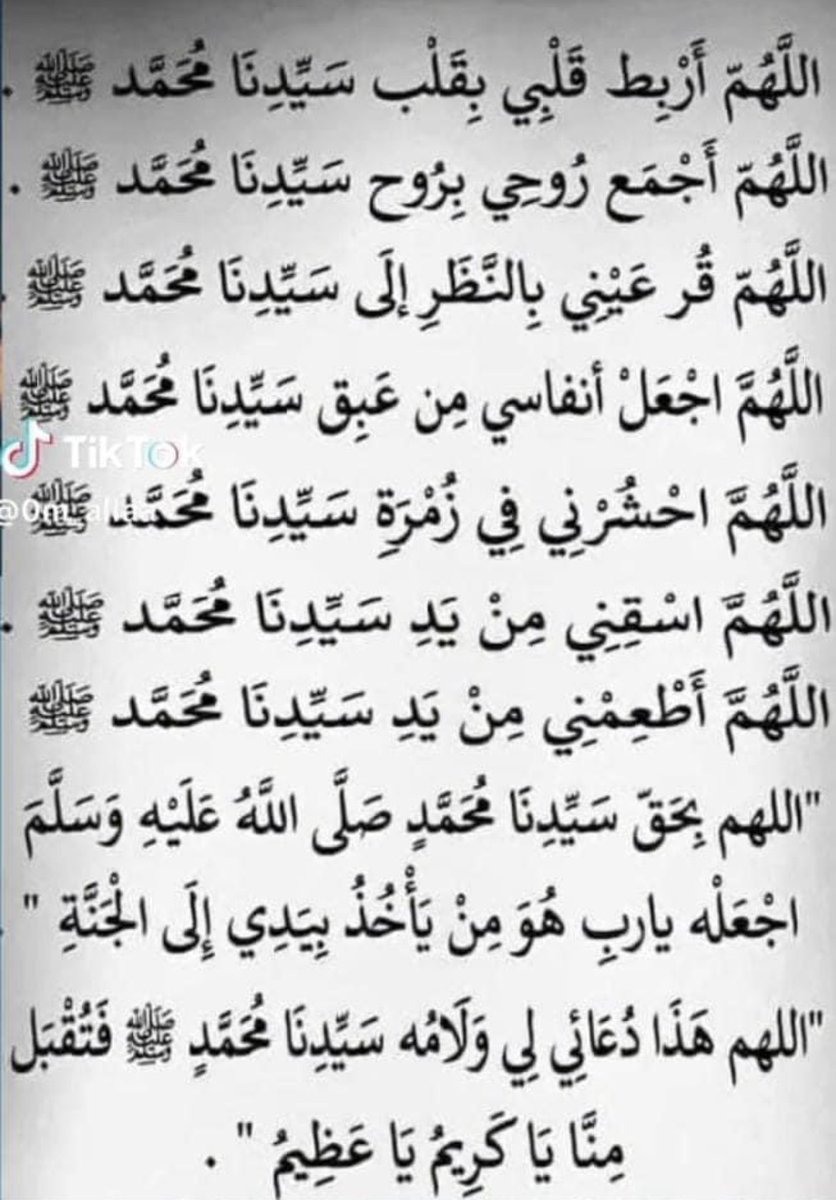 اللَّهُمّ أَرْبِط قَلْبِي بِقَلْب سَيِّدِنَا مُحَمَّد ﷺ .
اللَّهُمّ أَجْمَع رُوحِي بِرُوح سَيِّدِنَا مُحَمَّد ﷺ .
اللَّهُمّ قُر عَيْنِي بِالنَّظَرِ إلَى سَيِّدِنَا مُحَمَّد ﷺ .
اللَّهُمَّ اجْعَلْ أنفاسي مِن عَبِق سَيِّدِنَا مُحَمَّد ﷺ
TikTok
اللَّهُمَّ احْشُرْنِي فِي زُمْرَةِ سَيِّدِنَا مُحَمَّد ﷺ
اللَّهُمَّ اسْقِنِي مِنْ يَدِ سَيِّدِنَا مُحَمَّد ﷺ .
اللَّهُمَّ أَطْعِمْنِي مِنْ يَدِ سَيِّدِنَا مُحَمَّد ﷺ
"اللهم بِحَقّ سَيِّدِنَا مُحَمَّدٍ صَلَّى اللَّهُ عَلَيْهِ وَسَلَّمَ
اجْعَلْه ياربِ هُوَ مِنْ يَأْخُذُ بِيَدِي إِلَى الْجَنَّةِ " .
"اللهم هَذَا دُعَائِي لِي وَلَامُه سَيِّدِنَا مُحَمَّدٍ ﷺ فَتُقْبَل
مِنَّا يَا كَرِيمُ يَا عَظِيمُ " .